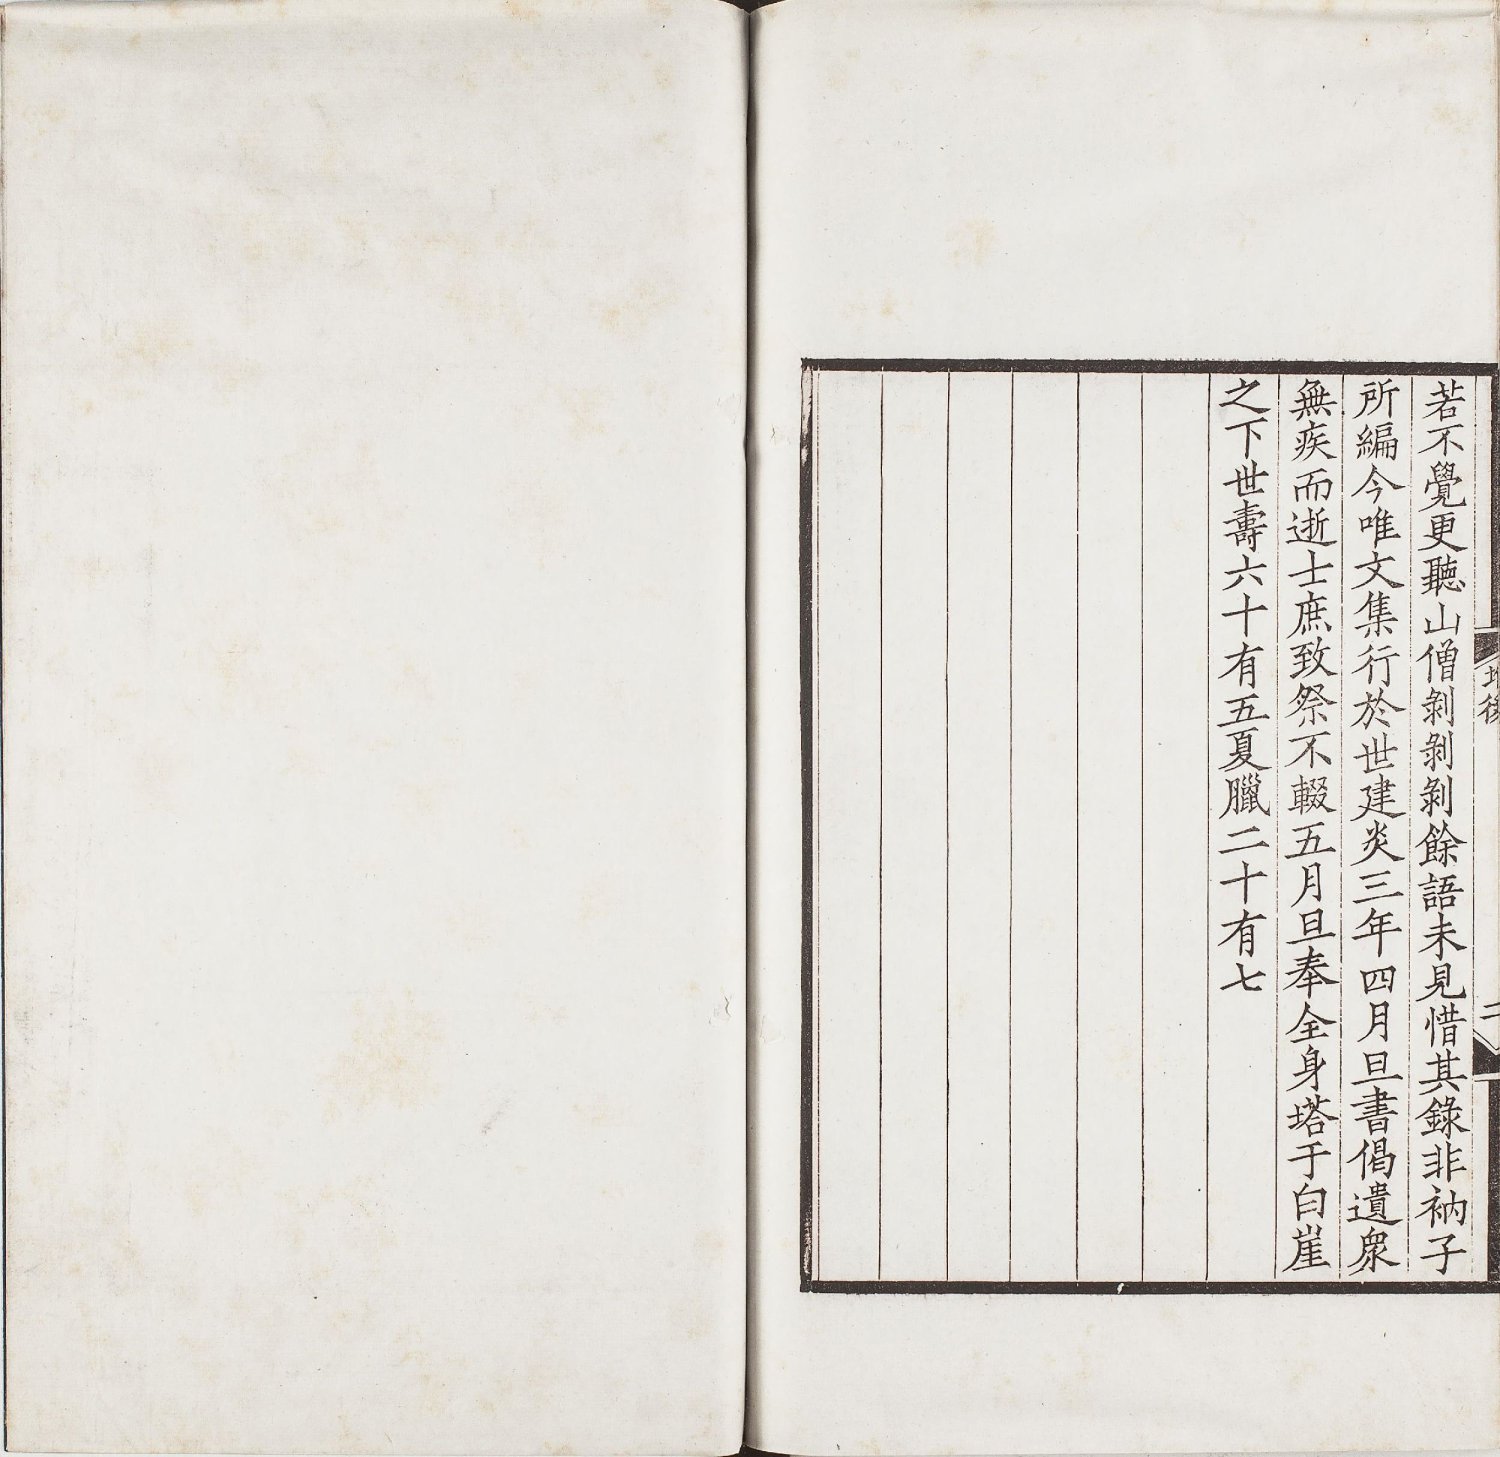 後
二
若不覺更聽山僧剝剝剝餘語未見惜其錄非衲子
所編今唯文集行於世建炎三年四月旦書偈遺衆
無疾而逝士庶致祭不輟五月旦奉全身塔于白崖
之下世壽六十有五夏臘二十有七